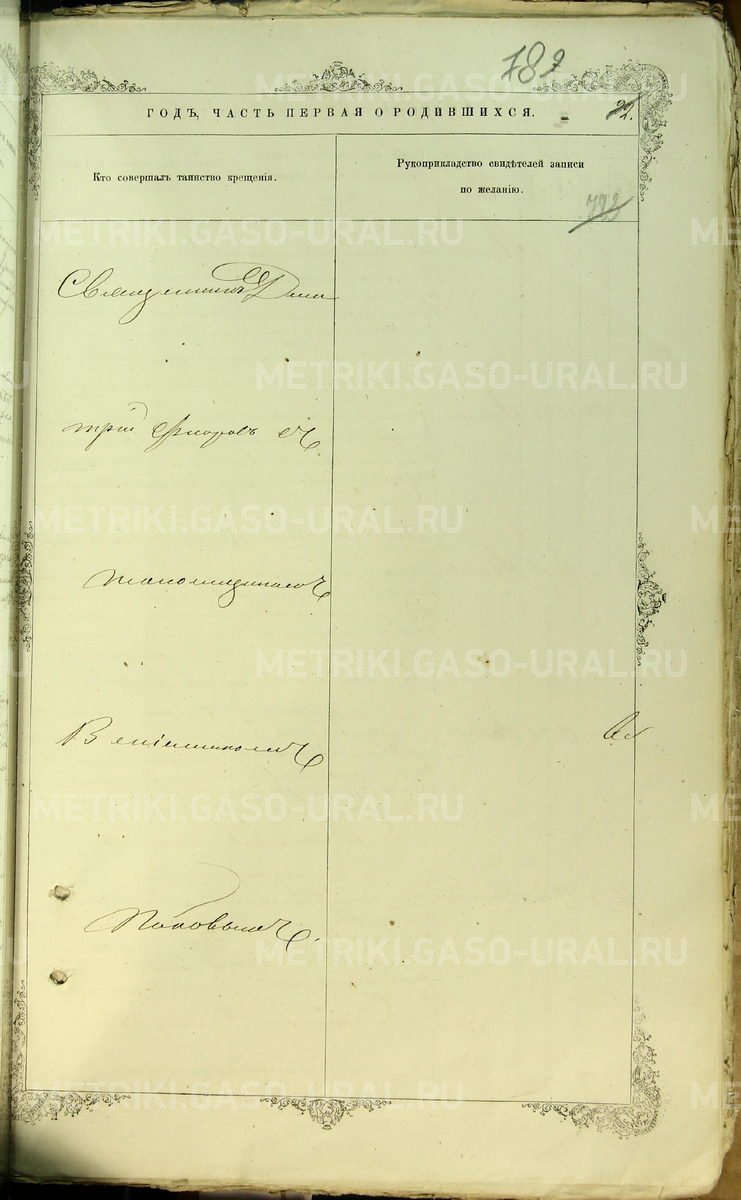 782
ГОДЪ, ЧАСТЬ ПЕРВАЯ О РОДИВШИХСЯ.
22.
Кто совершалъ таинство крещенія.
Рукоприкладство свидѣтелей записи
по желанію.
Священникъ Дми
трій Флоровъ съ
псаломщикомъ
Веніаминомъ
Поповымъ.
METRIKI.GASO-URAL.RU